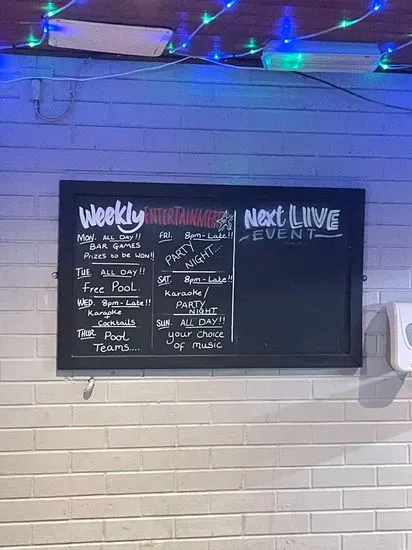 Weekly ENTERTAINMENT
MON. ALL DAY!!
BAR GAMES
PRIZES TO BE WON!!
TUE. ALL DAY!!
FREE POOL.
WED. 8pm-Late!!
KARAOKE
+
COCKTAILS
THUR. POOL
TEAMS....
FRI. 8pm-Late!!
PARTY
NIGHT....
SAT. 8pm-Late!!
KARAOKE/
PARTY
NIGHT
SUN. ALL DAY!!
your choice
of music
Next LIVE
EVENT